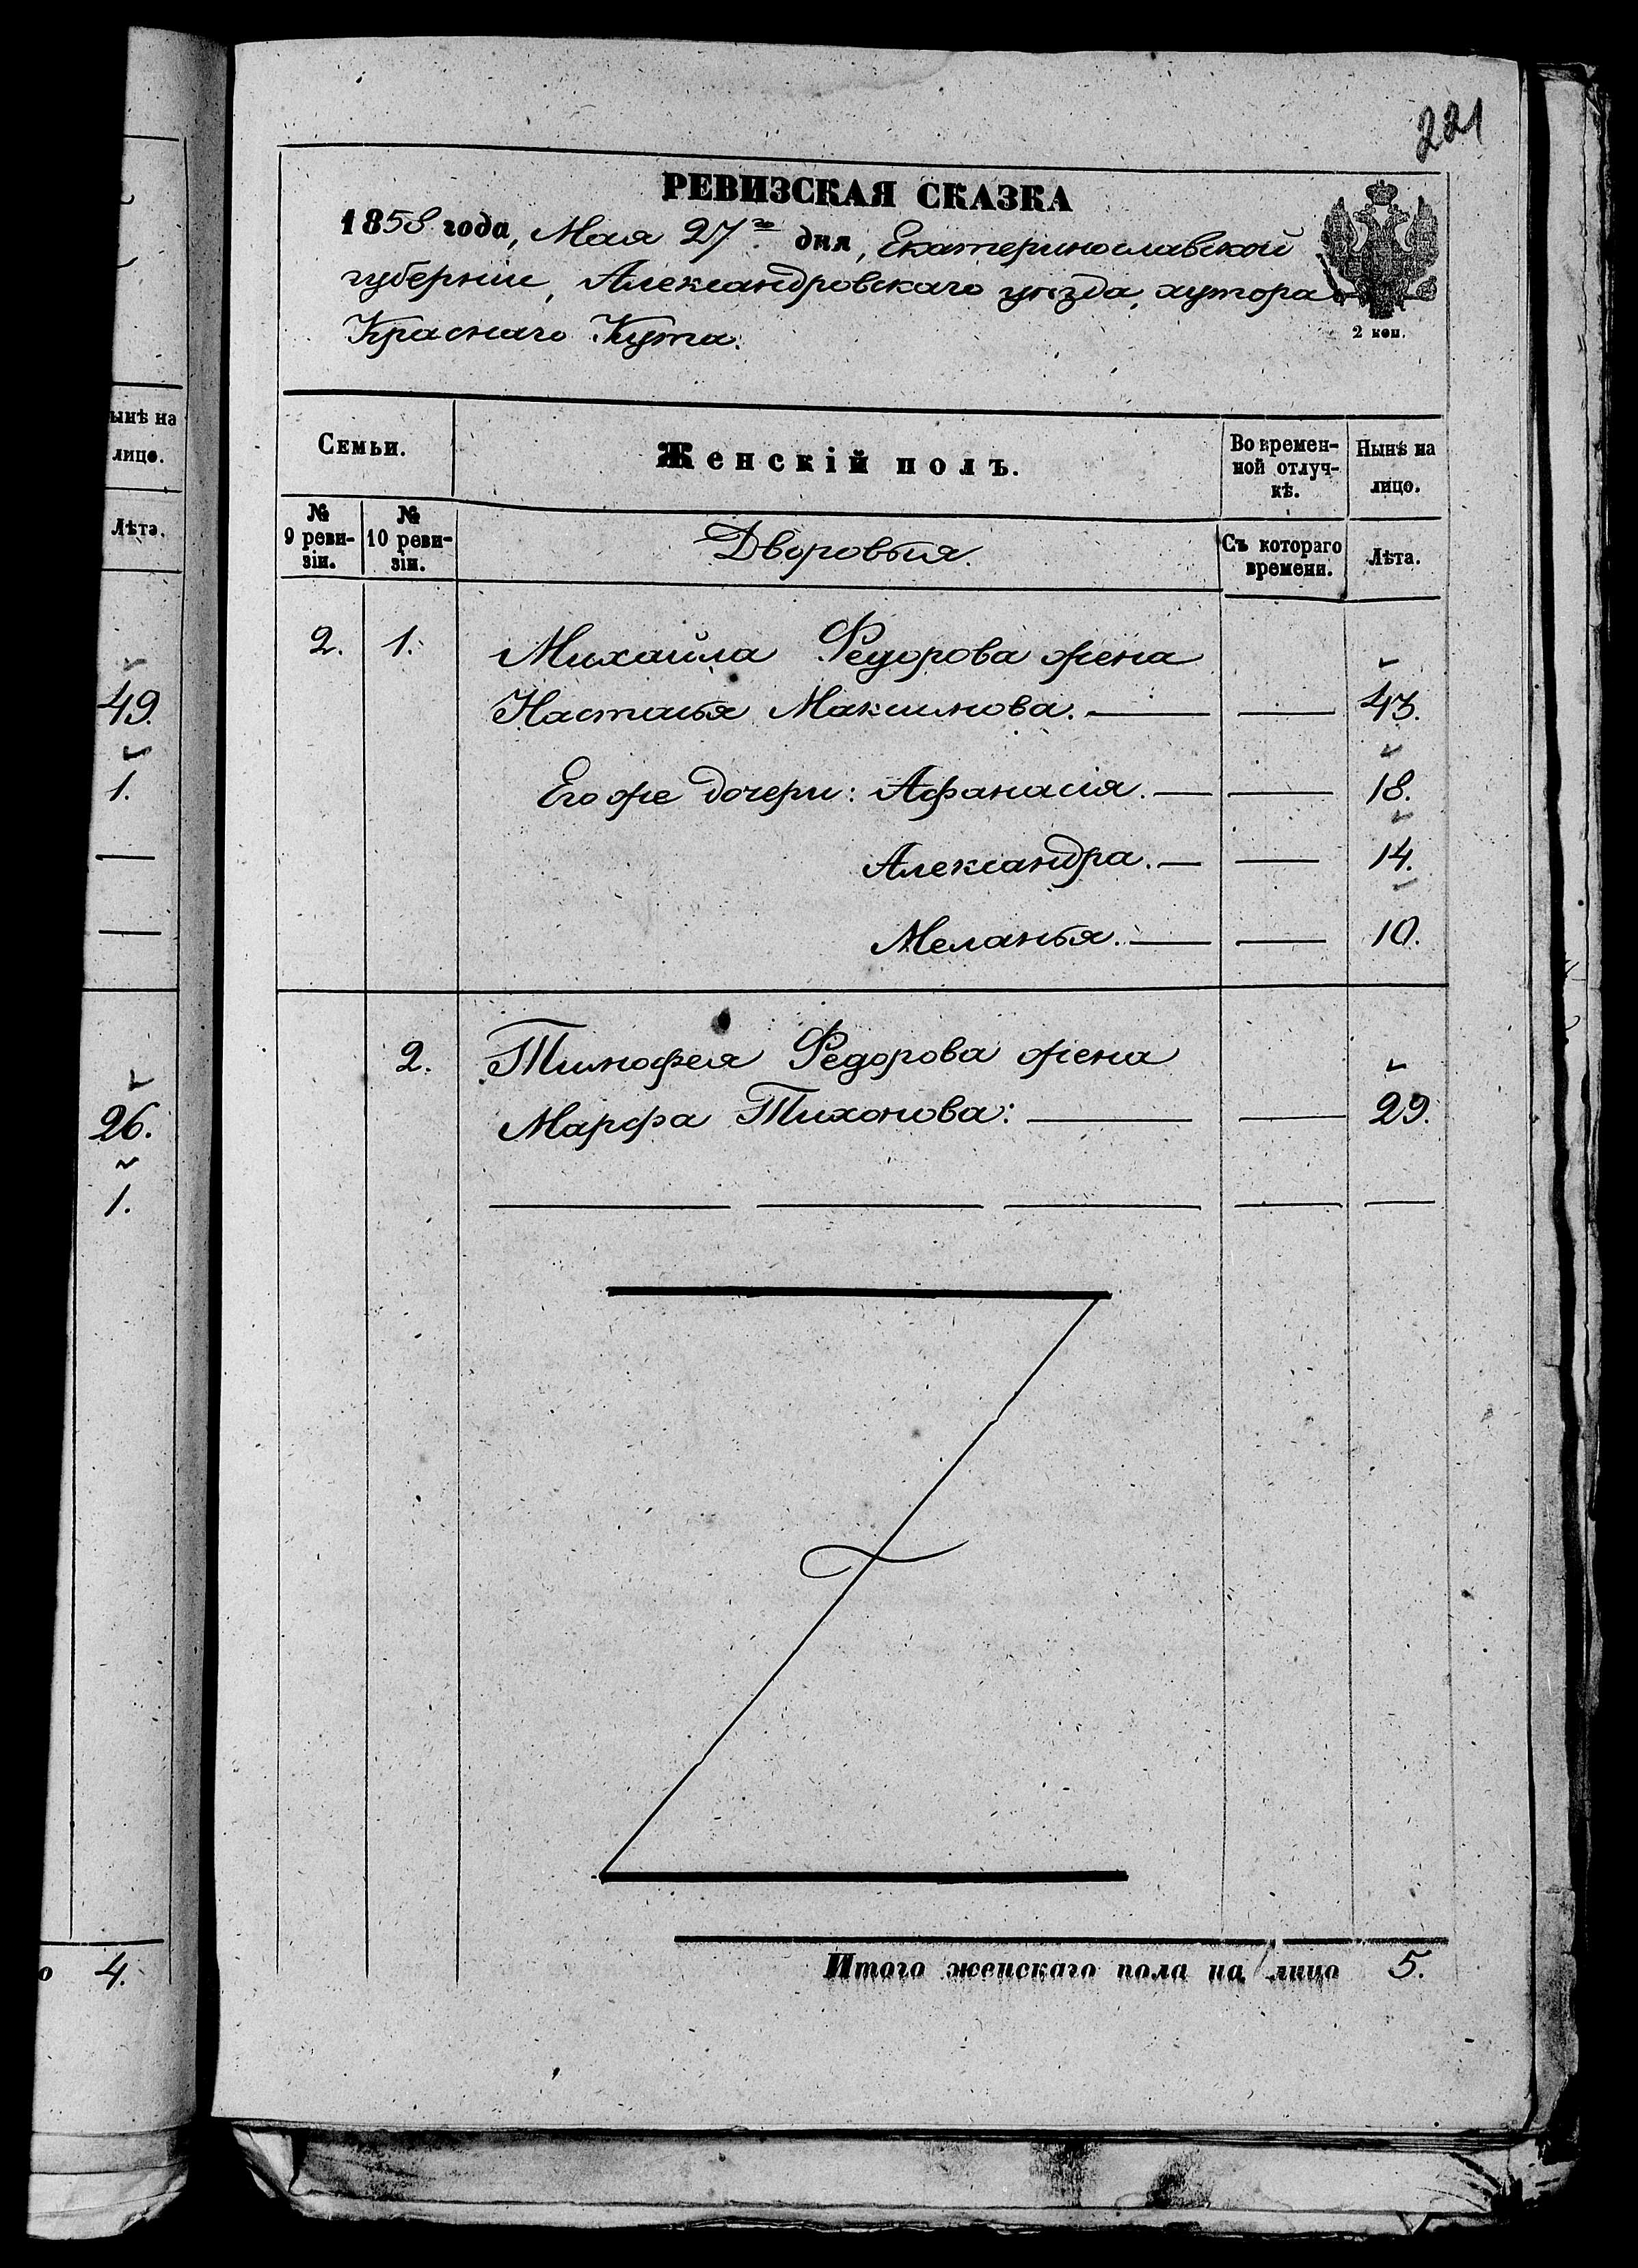 221
РЕВИЗСКАЯ СКАЗКА
1858 года, Мая 27го дня, Екатеринославской
губерніи, Александровскаго уѣзда, хутора
Краснаго Кута.
2 коп.
Семьи.
Женскій полъ.
Во времен-
ной отлуч-
кѣ.
Нынѣ на
лицо.
№
9 реви-
зіи.
№
10 реви-
зіи.
Дворовыя.
Съ котораго
времени.
Лѣта.
2. 1. Михайла Федорова жена
Настасья Максимова. 43.
Его же дочери: Афанасія. 18.
Александра. 14.
Меланья. 10.
2. Тимофея Федорова жена
Марфа Тихонова: 29.
Итого женскаго пола на лицо 5.
ынѣ на
лицо.
Лѣта.
49.
1.
26.
1.
о 4.